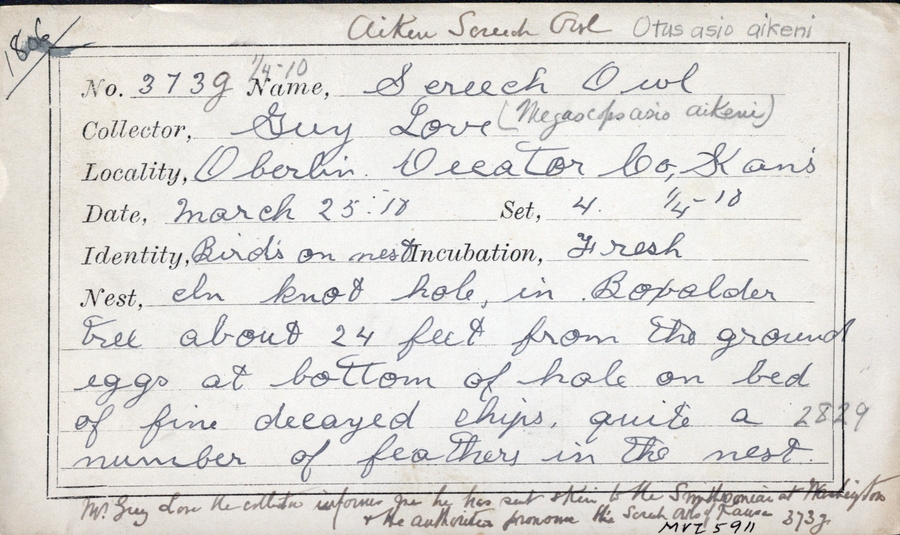 Aiken Screech Owl Otus asio aikeni
1806
No. 373g 1/4-10 Name, Screech Owl
Collector, Guy Love (Megascops asio aikeni)
Locality, Oberlin. Decator Co, Kans
Date, March 25. 10 Set, 4. 1/4-10
Identity, Birds on nest Incubation, Fresh
Nest, In knot hole, in Boxalder
tree about 24 feet from the ground
eggs at bottom of hole on bed
of fine decayed chips, quite a 2829
number of feathers in the nest.
Mr. Guy Love the collector informs me he has sent skin to the Smithsonian at Washington
& the authorities pronounce the Screech Owls of Kansas 373g
MVZ 5911